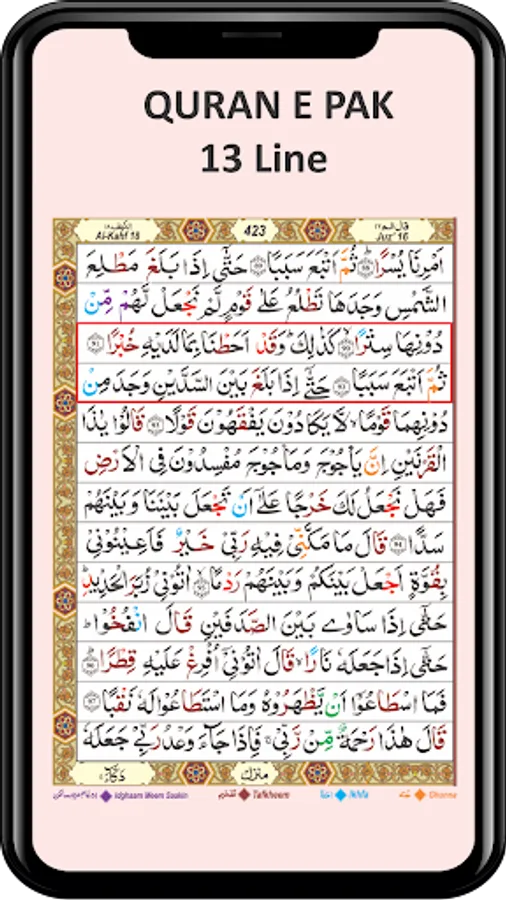 QURAN E PAK
13 Line
الكهف ١٨
Al-Kahf 18
423
قال الم ١٦
Juz' 16
اَمْرِنَا يُسْرًا ﴿۸۸﴾ ثُمَّ اَتْبَعَ سَبَبًا ﴿۸۹﴾ حَتّٰۤى اِذَا بَلَغَ مَطْلِعَ
الشَّمْسِ وَجَدَهَا تَطْلُعُ عَلٰى قَوْمٍ لَّمْ نَجْعَلْ لَّهُمْ مِّنْ
دُوْنِهَا سِتْرًا ﴿۹۰﴾ كَذٰلِكَ ؕ وَقَدْ اَحَطْنَا بِمَا لَدَيْهِ خُبْرًا ﴿۹۱﴾
ثُمَّ اَتْبَعَ سَبَبًا ﴿۹۲﴾ حَتّٰۤى اِذَا بَلَغَ بَيْنَ السَّدَّيْنِ وَجَدَ مِنْ
دُوْنِهِمَا قَوْمًا ۙ لَّا يَكَادُوْنَ يَفْقَهُوْنَ قَوْلًا ﴿۹۳﴾ قَالُوْا يٰذَا
الْقَرْنَيْنِ اِنَّ يَاْجُوْجَ وَمَاْجُوْجَ مُفْسِدُوْنَ فِى الْاَرْضِ
فَهَلْ نَجْعَلُ لَكَ خَرْجًا عَلٰۤى اَنْ تَجْعَلَ بَيْنَنَا وَبَيْنَهُمْ
سَدًّا ﴿۹۴﴾ قَالَ مَا مَكَّنِّىْ فِيْهِ رَبِّىْ خَيْرٌ فَاَعِيْنُوْنِىْ
بِقُوَّةٍ اَجْعَلْ بَيْنَكُمْ وَبَيْنَهُمْ رَدْمًا ﴿۹۵﴾ اٰتُوْنِىْ زُبَرَ الْحَدِيْدِ ؕ
حَتّٰۤى اِذَا سَاوٰى بَيْنَ الصَّدَفَيْنِ قَالَ انْفُخُوْا ؕ
حَتّٰۤى اِذَا جَعَلَهٗ نَارًا ۙ قَالَ اٰتُوْنِىْۤ اُفْرِغْ عَلَيْهِ قِطْرًا ﴿۹۶﴾
فَمَا اسْطَاعُوْۤا اَنْ يَّظْهَرُوْهُ وَمَا اسْتَطَاعُوْا لَهٗ نَقْبًا ﴿۹۷﴾
قَالَ هٰذَا رَحْمَةٌ مِّنْ رَّبِّىْ ۚ فَاِذَا جَآءَ وَعْدُ رَبِّىْ جَعَلَهٗ
دَكَّآءَ
منزل
Idghaam Meem Saakin
Tafkheem
Ikhfa
Ghunna